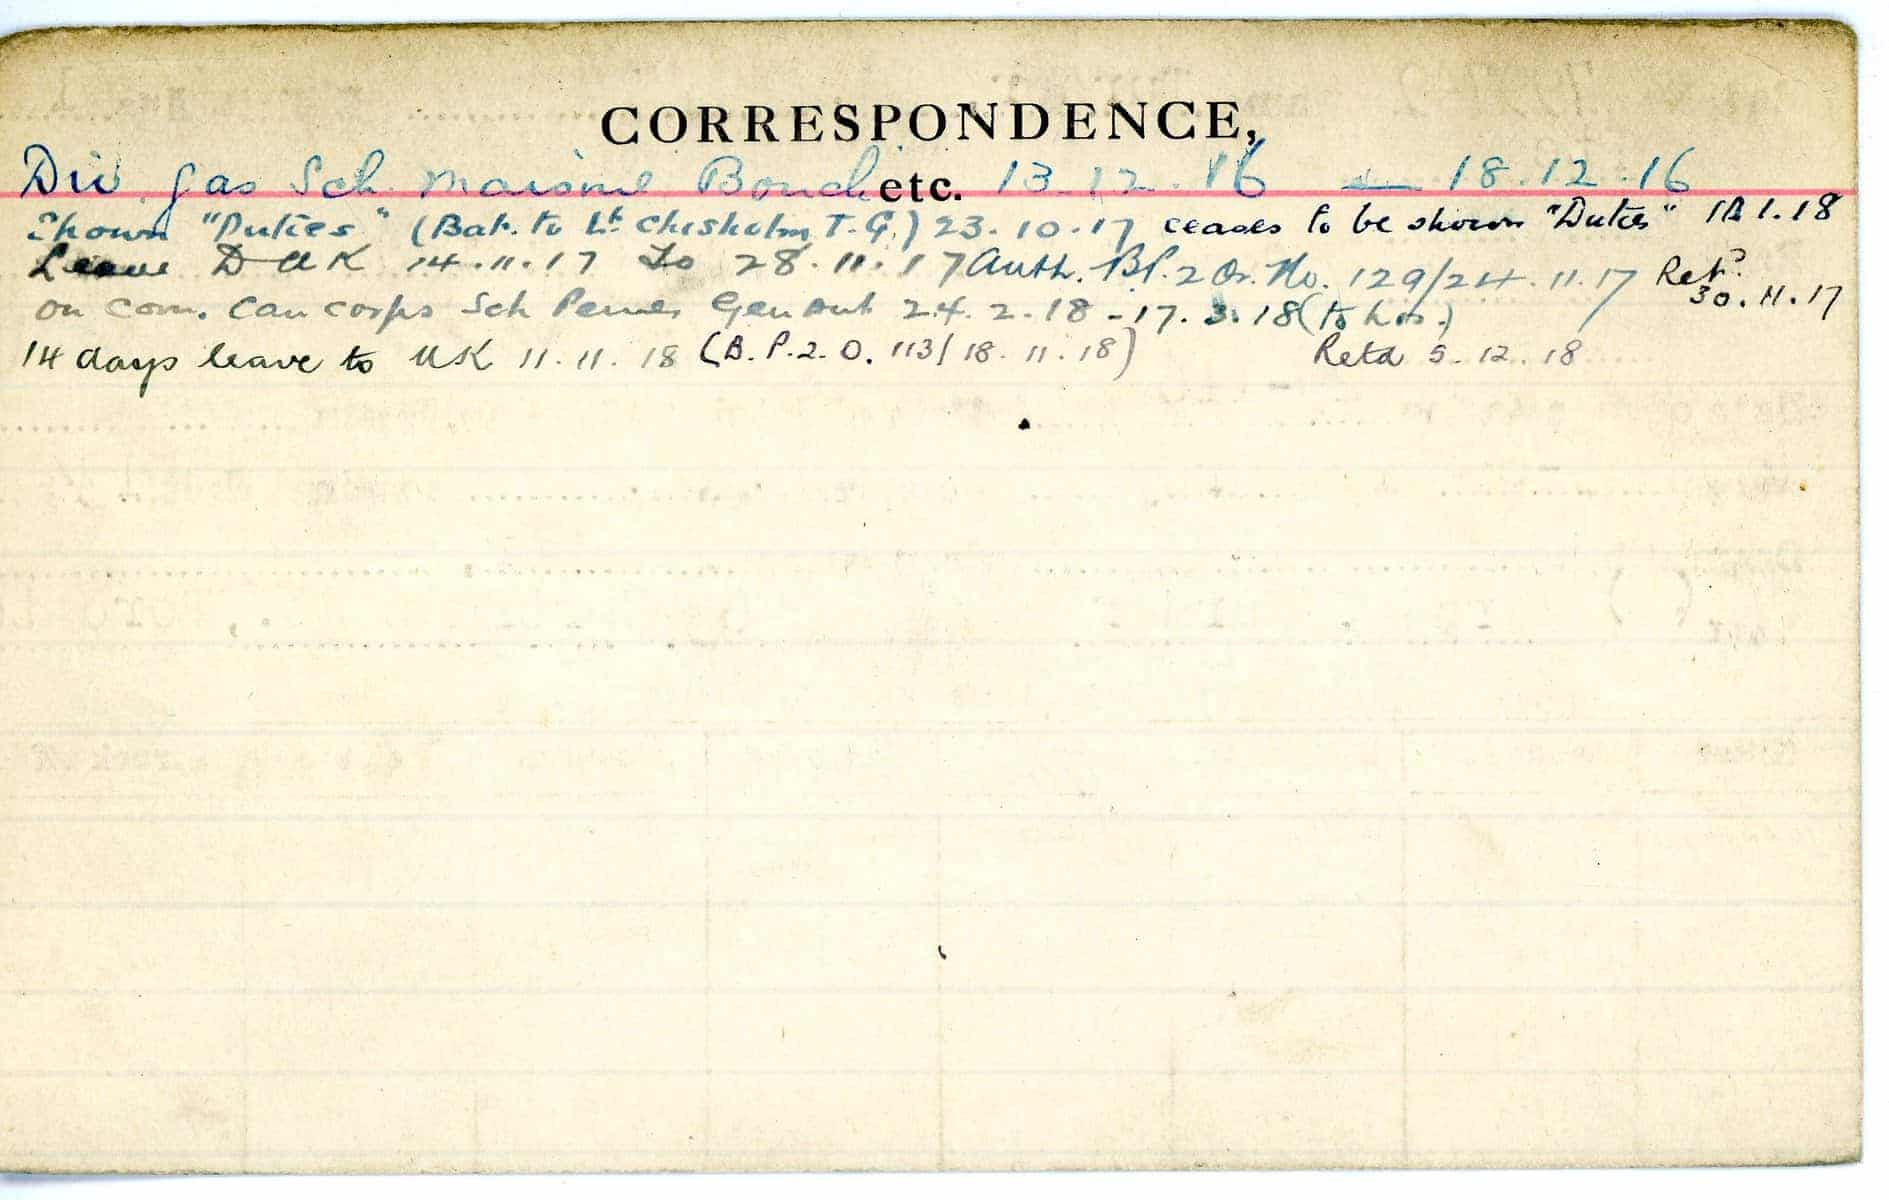 CORRESPONDENCE,
Div. Gas Sch. Maisnil Bouche etc. 13.12.16 — 18.12.16
Shown "Duties" (Bat. to Lt Chisholm T.G.) 23.10.17 ceases to be shown "Duties" 1.18
Leave UK 14.11.17 To 28.11.17 Auth. Bl. 2 Or. No. 129/24.11.17 Retd
30.11.17
on com. Can corps Sch Pernes Gen 24.2.18 - 17.3.18
14 days leave to UK 11.11.18 (B.P.2.O. 113/18.11.18) Retd 5.12.18